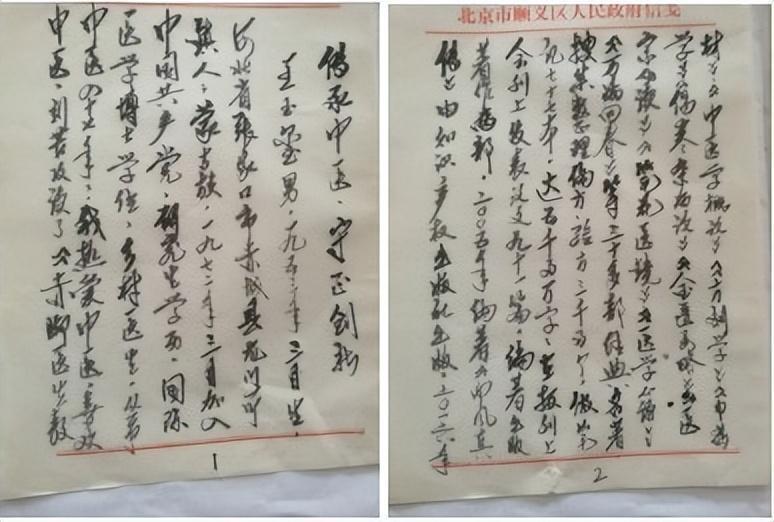 传承中医、守正创新
王玉玺男，一九五三年三月生，
河北省张家口市赤城县龙门所
镇人，蒙古族，一九七二年三月加入
中国共产党，研究生学历，国际
医学博士学位，乡村医生，从事
中医四十七年，我热爱中医，喜欢
中医，刻苦攻读了《赤脚医生教
北京市顺义区人民政府信笺
材》《中医学概论》《方剂学》《
学》《伤寒杂病论》《金匮要略》《医
宗金
《万病回春》等三十多部经典名著
搜集整理偏方、验方三千多个，做笔
记七十七本，达五千多万字，在报刊上
会刊上发表论文九十一篇，编著出版
著作两部，二〇〇五年编著《
传》由知识产权出版社出版，二〇一六年
1
2